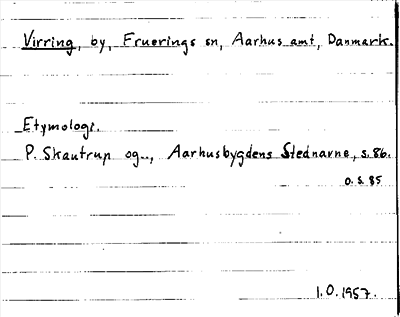 Virring, by, Fruerings sn, Aarhus amt, Danmark.
Etymologi.
P. Skautrup og.., Aarhusbygdens Stednavne, s. 86.
o. s. 85
1.O.1957.